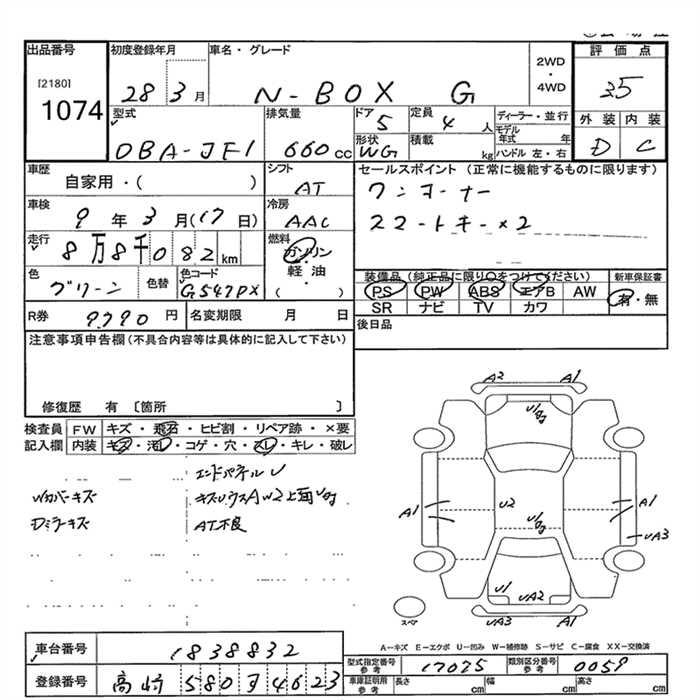 出品番号
[2180]
1074
初度登録年月
28 3月
車名・グレード
N-BOX G
2WD
・
4WD
評価点
3.5
外装 内装
D C
型式
DBA-JF1
排気量
660cc
ドア
5
定員
4人
形状
WG
積載
kg
ディーラー・並行
モデル
年式 年
ハンドル 左・右
車歴
自家用・( )
シフト
AT
セールスポイント (正常に機能するものに限ります)
ワンオーナー
スマートキー×2
車検
9年3月(17日)
冷房
AAC
走行
8万8千082km
燃料
ガソリン
・
軽油
・
( )
色
グリーン
色替
色コード
G547PX
装備品(純正品に限り○をつけてください)
PS PW ABS エアB AW
SR ナビ TV カワ
新車保証書
有・無
R券 9790円
名変期限 月 日
後日品
注意事項申告欄(不具合内容等は具体的に記入して下さい)
修復歴 有 〔箇所 〕
検査員 FW キズ・飛石・ヒビ割・リペア跡・×要
記入欄 内装 キズ・汚レ・コゲ・穴・スレ・キレ・破レ
エンドパネルU
Wカバーキズ
Dミラーキズ
AT不良
A2 A1
U/g
A1
U2
U/g
A1
UA3
U1 UA2
UA3 A1
スペア
A-キズ E-エクボ U-凹み W-補修跡 S-サビ C-腐食 XX-交換済
車台番号
1838832
型式指定番号
参考
17075
類別区分番号
参考
0059
登録番号
高崎 580 ヲ 4623
車庫証明用
参考
長さ cm
幅 cm
高さ cm